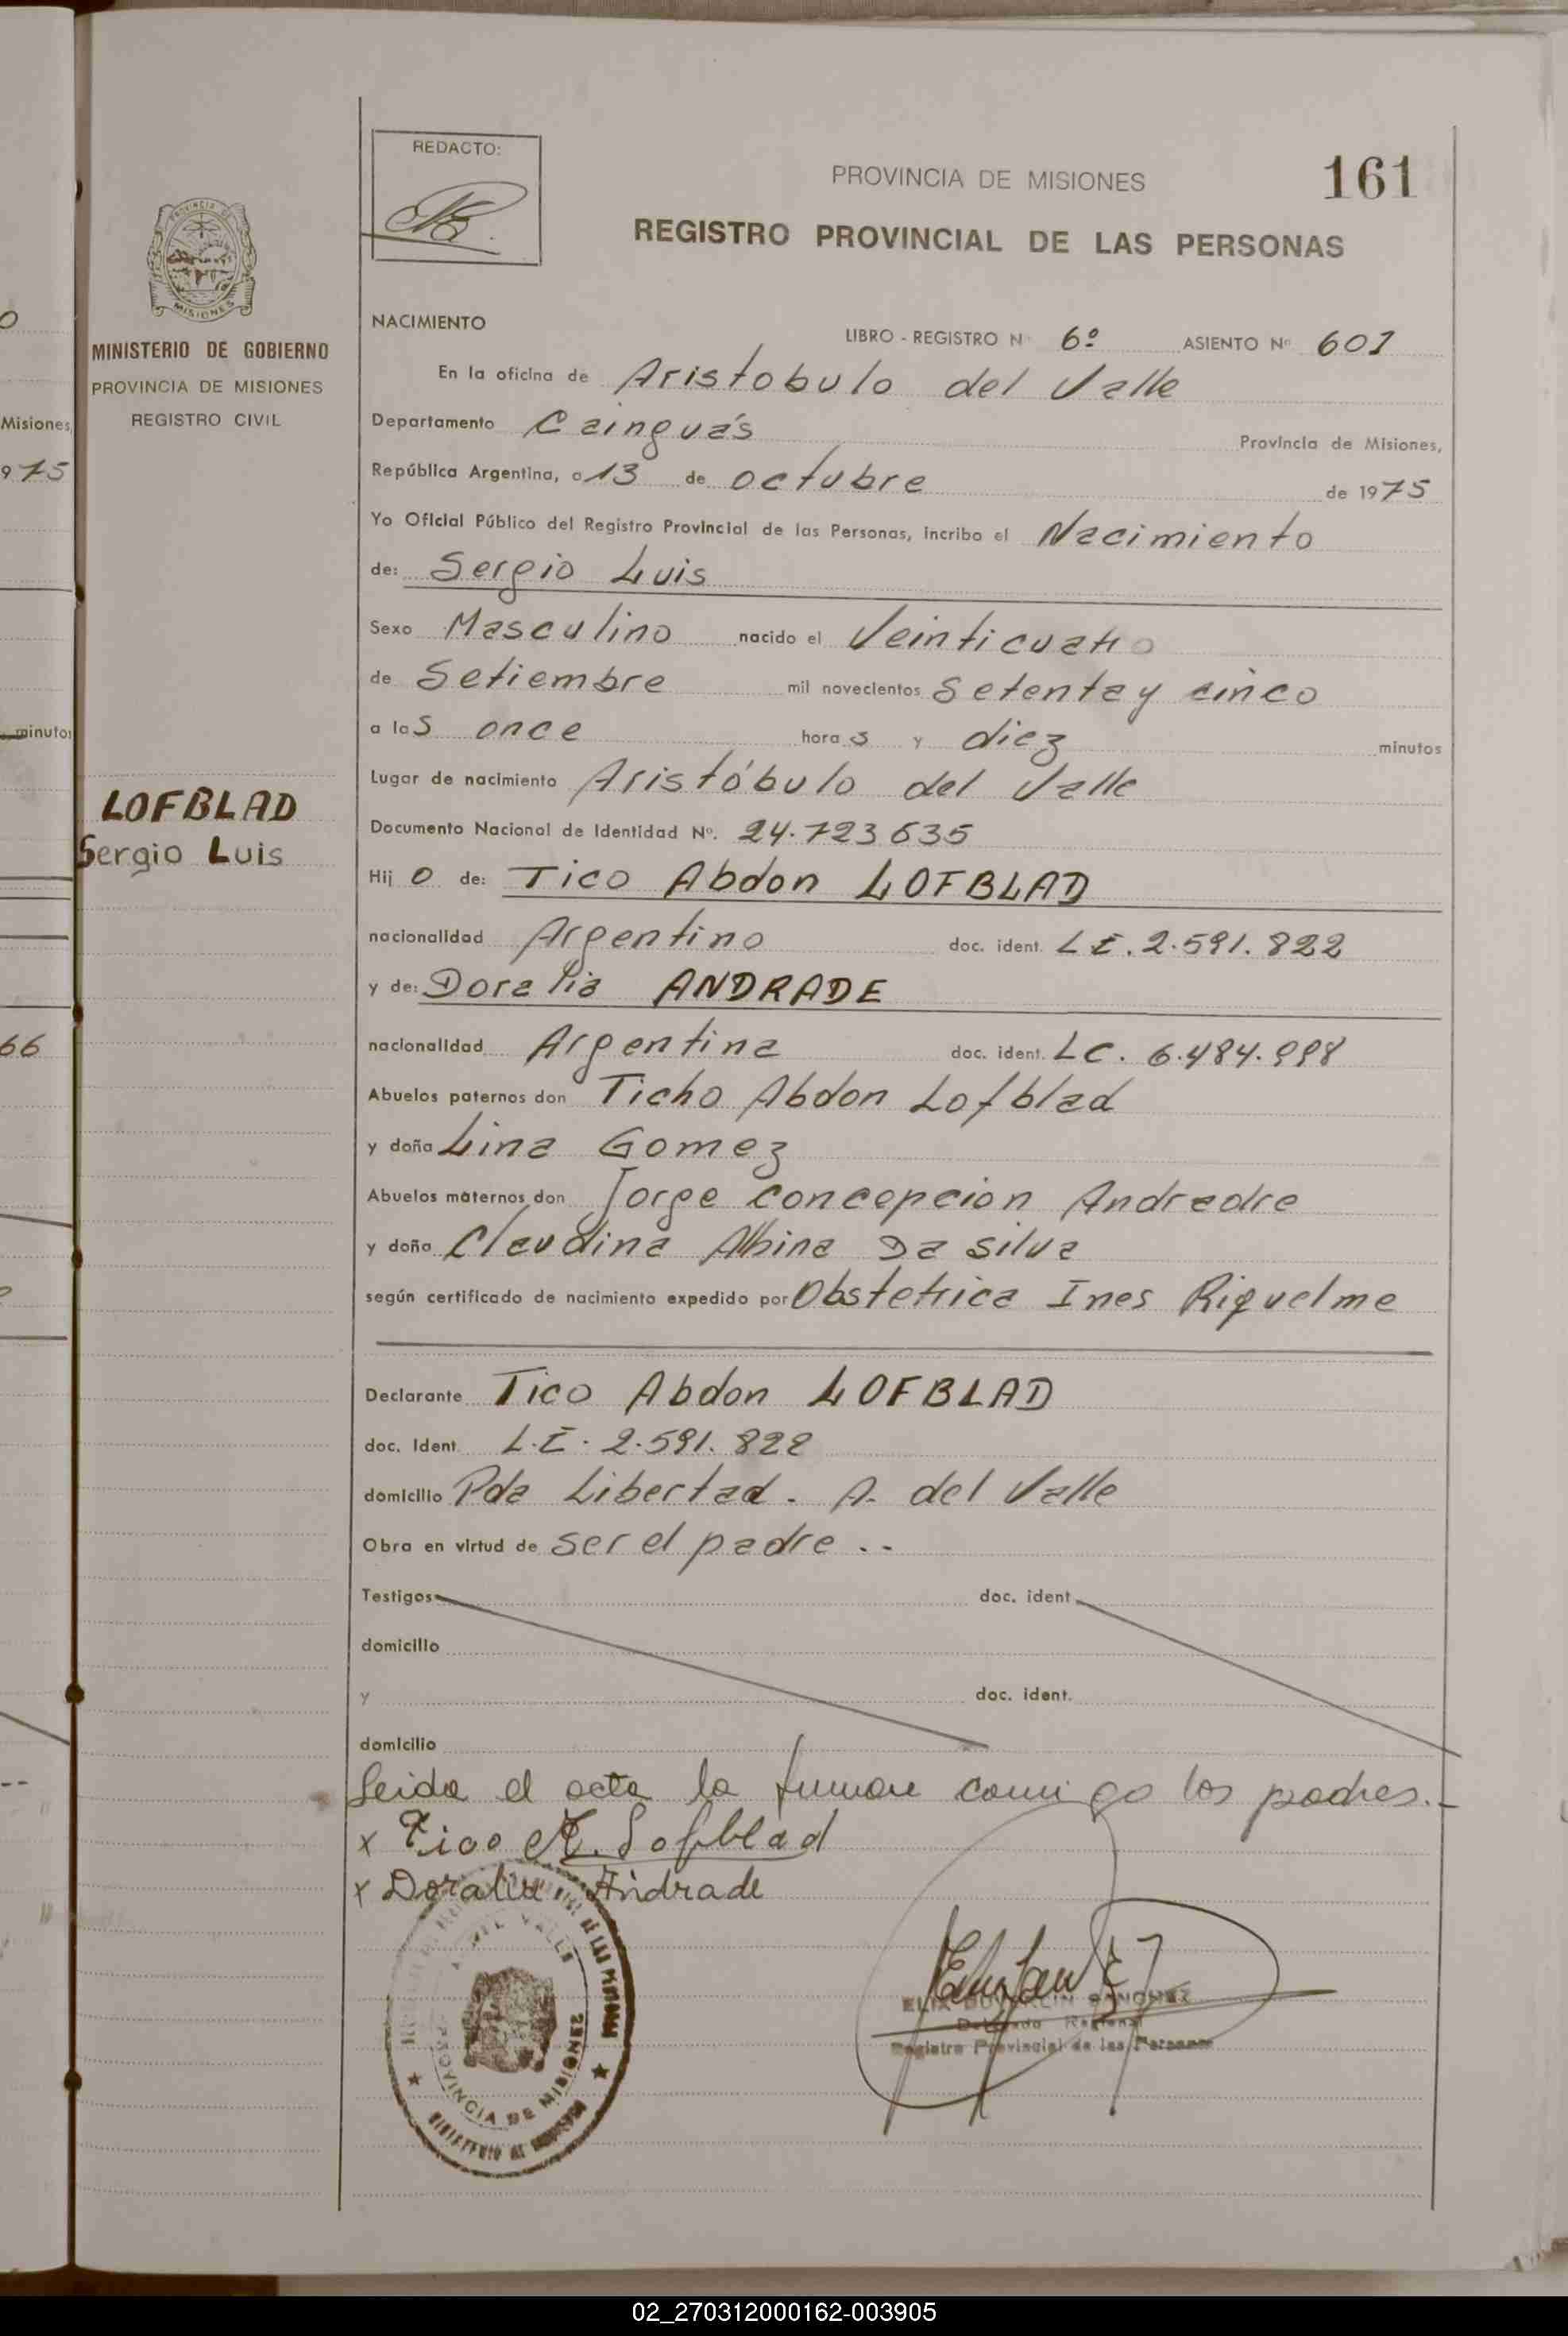 161
REDACTO:
PROVINCIA DE MISIONES
REGISTRO PROVINCIAL DE LAS PERSONAS
PROVINCIA DE
MISIONES
MINISTERIO DE GOBIERNO
PROVINCIA DE MISIONES
REGISTRO CIVIL
Misiones,
9 75
minutos
66
LOFBLAD
Sergio Luis
NACIMIENTO
LIBRO - REGISTRO N 6º ASIENTO Nº 601
En la oficina de Aristobulo del Valle
Departamento Cainguás Provincia de Misiones,
República Argentina, a 13 de octubre de 1975
Yo Oficial Público del Registro Provincial de las Personas, incribo el Nacimiento
de: Sergio Luis
Sexo Masculino nacido el Veinticuatro
de Setiembre mil novecientos Setenta y cinco
a las once horas y diez minutos
Lugar de nacimiento Aristóbulo del Valle
Documento Nacional de Identidad Nº. 24.723635
Hijo de: Tico Abdon LOFBLAD
nacionalidad Argentino doc. ident. L E. 2.591.822
y de: Doralia ANDRADE
nacionalidad Argentina doc. ident. LC. 6.484.998
Abuelos paternos don Ticho Abdon Lofblad
y doña Lina Gomez
Abuelos maternos don Jorge Concepcion Andradre
y doña Claudina Albina Da Silva
según certificado de nacimiento expedido por Obstetrica Ines Riquelme
Declarante Tico Abdon LOFBLAD
doc. Ident. L.E. 2.591.822
domicilio Pda Libertad. A. del Valle
Obra en virtud de ser el padre ..
Testigos doc. ident.
domicilio
y doc. ident.
domicilio
Leida el acta la firman comigo los padres.-
x Tico A. Lofblad
x Doralia Andrade
DEL VALLE
DE LAS PERSONAS
PROVINCIA DE MISIONES
MINISTERIO DE GOBIERNO
SANCHEZ
Delegado Regional
Registro Provincial de las Personas
02_270312000162-003905